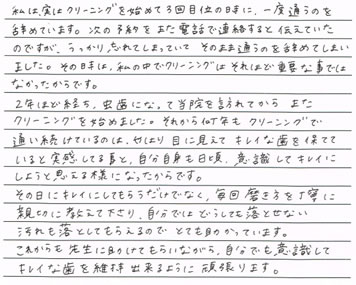 私は、実はクリーニングを始めて3回目位の時に、一度通うのを
辞めています。次の予約をまた電話で連絡すると伝えていた
のですが、うっかり忘れてしまっていて そのまま通うのを辞めてしまい
ました。その時は、私の中でクリーニングは それほど重要な事では
なかったからです。
2年ほど経ち、虫歯になって当院を訪れてから また
クリーニングを始めました。それから何年も クリーニングで
通い続けているのは、やはり 目に見えて キレイな歯を保てて
いると実感してる事と、自分自身も日頃、意識してキレイに
しようと思える様になったからです。
その日にキレイにしてもらうだけでなく、毎回 磨き方を丁寧に
親切に教えて下さり、自分ではどうしても落とせない
汚れも落としてもらえるので とても助かっています。
これからも 先生に助けてもらいながら、自分でも意識して
キレイな歯を維持出来るように 頑張ります。